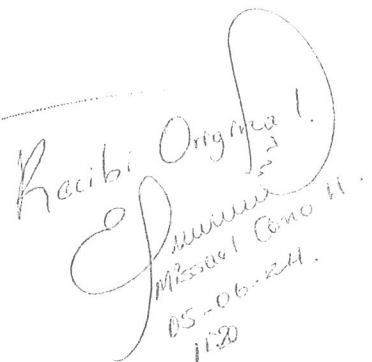 Recibi Original.
Missael Cano H.
05-06-24.
11:20